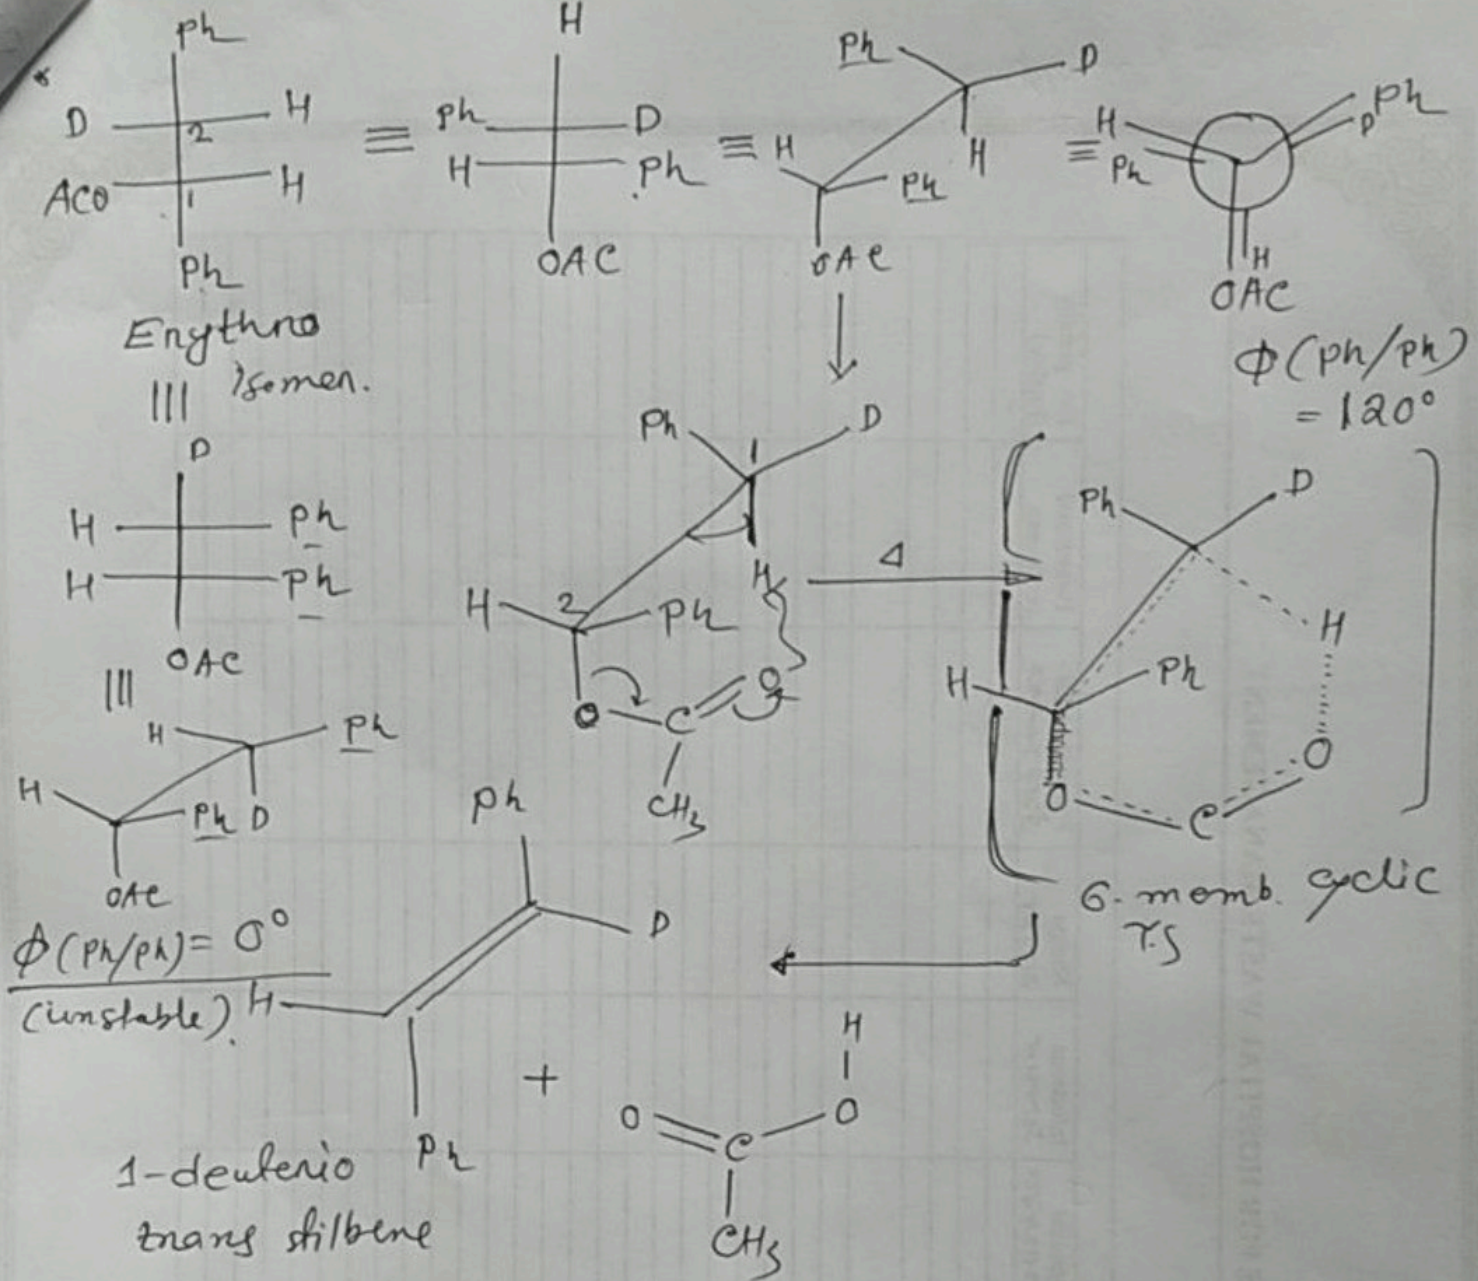 *
Ph
D 2 H
ACO 1 H
Ph
Erythro
isomer.
≡
H
Ph D
H Ph
OAC
≡
Ph D
H H
Ph
OAC
≡
H Ph
Ph D
H
OAC
Φ(Ph/Ph)
= 120°
≡
D
H Ph
H Ph
OAC
≡
H Ph
H Ph D
OAC
Φ(Ph/Ph) = 0°
(unstable).
Ph 1 D
H
H 2 Ph
O C O
CH3
Δ
Ph D
H
H Ph
O C O
6. memb. cyclic
T.S
Ph
D
H
Ph
1-deuterio
trans stilbene
+
H
O O
C
CH3